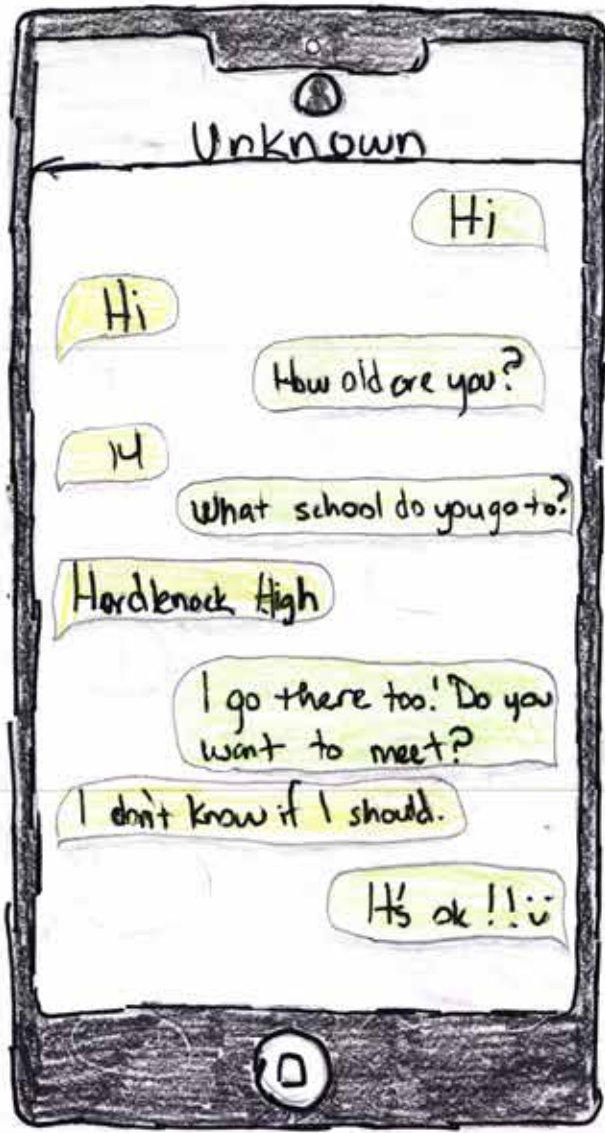 Unknown
Hi
Hi
How old are you?
14
What school do you go to?
Hardknock High
I go there too! Do you
want to meet?
I don't know if I should.
It's ok !! :)